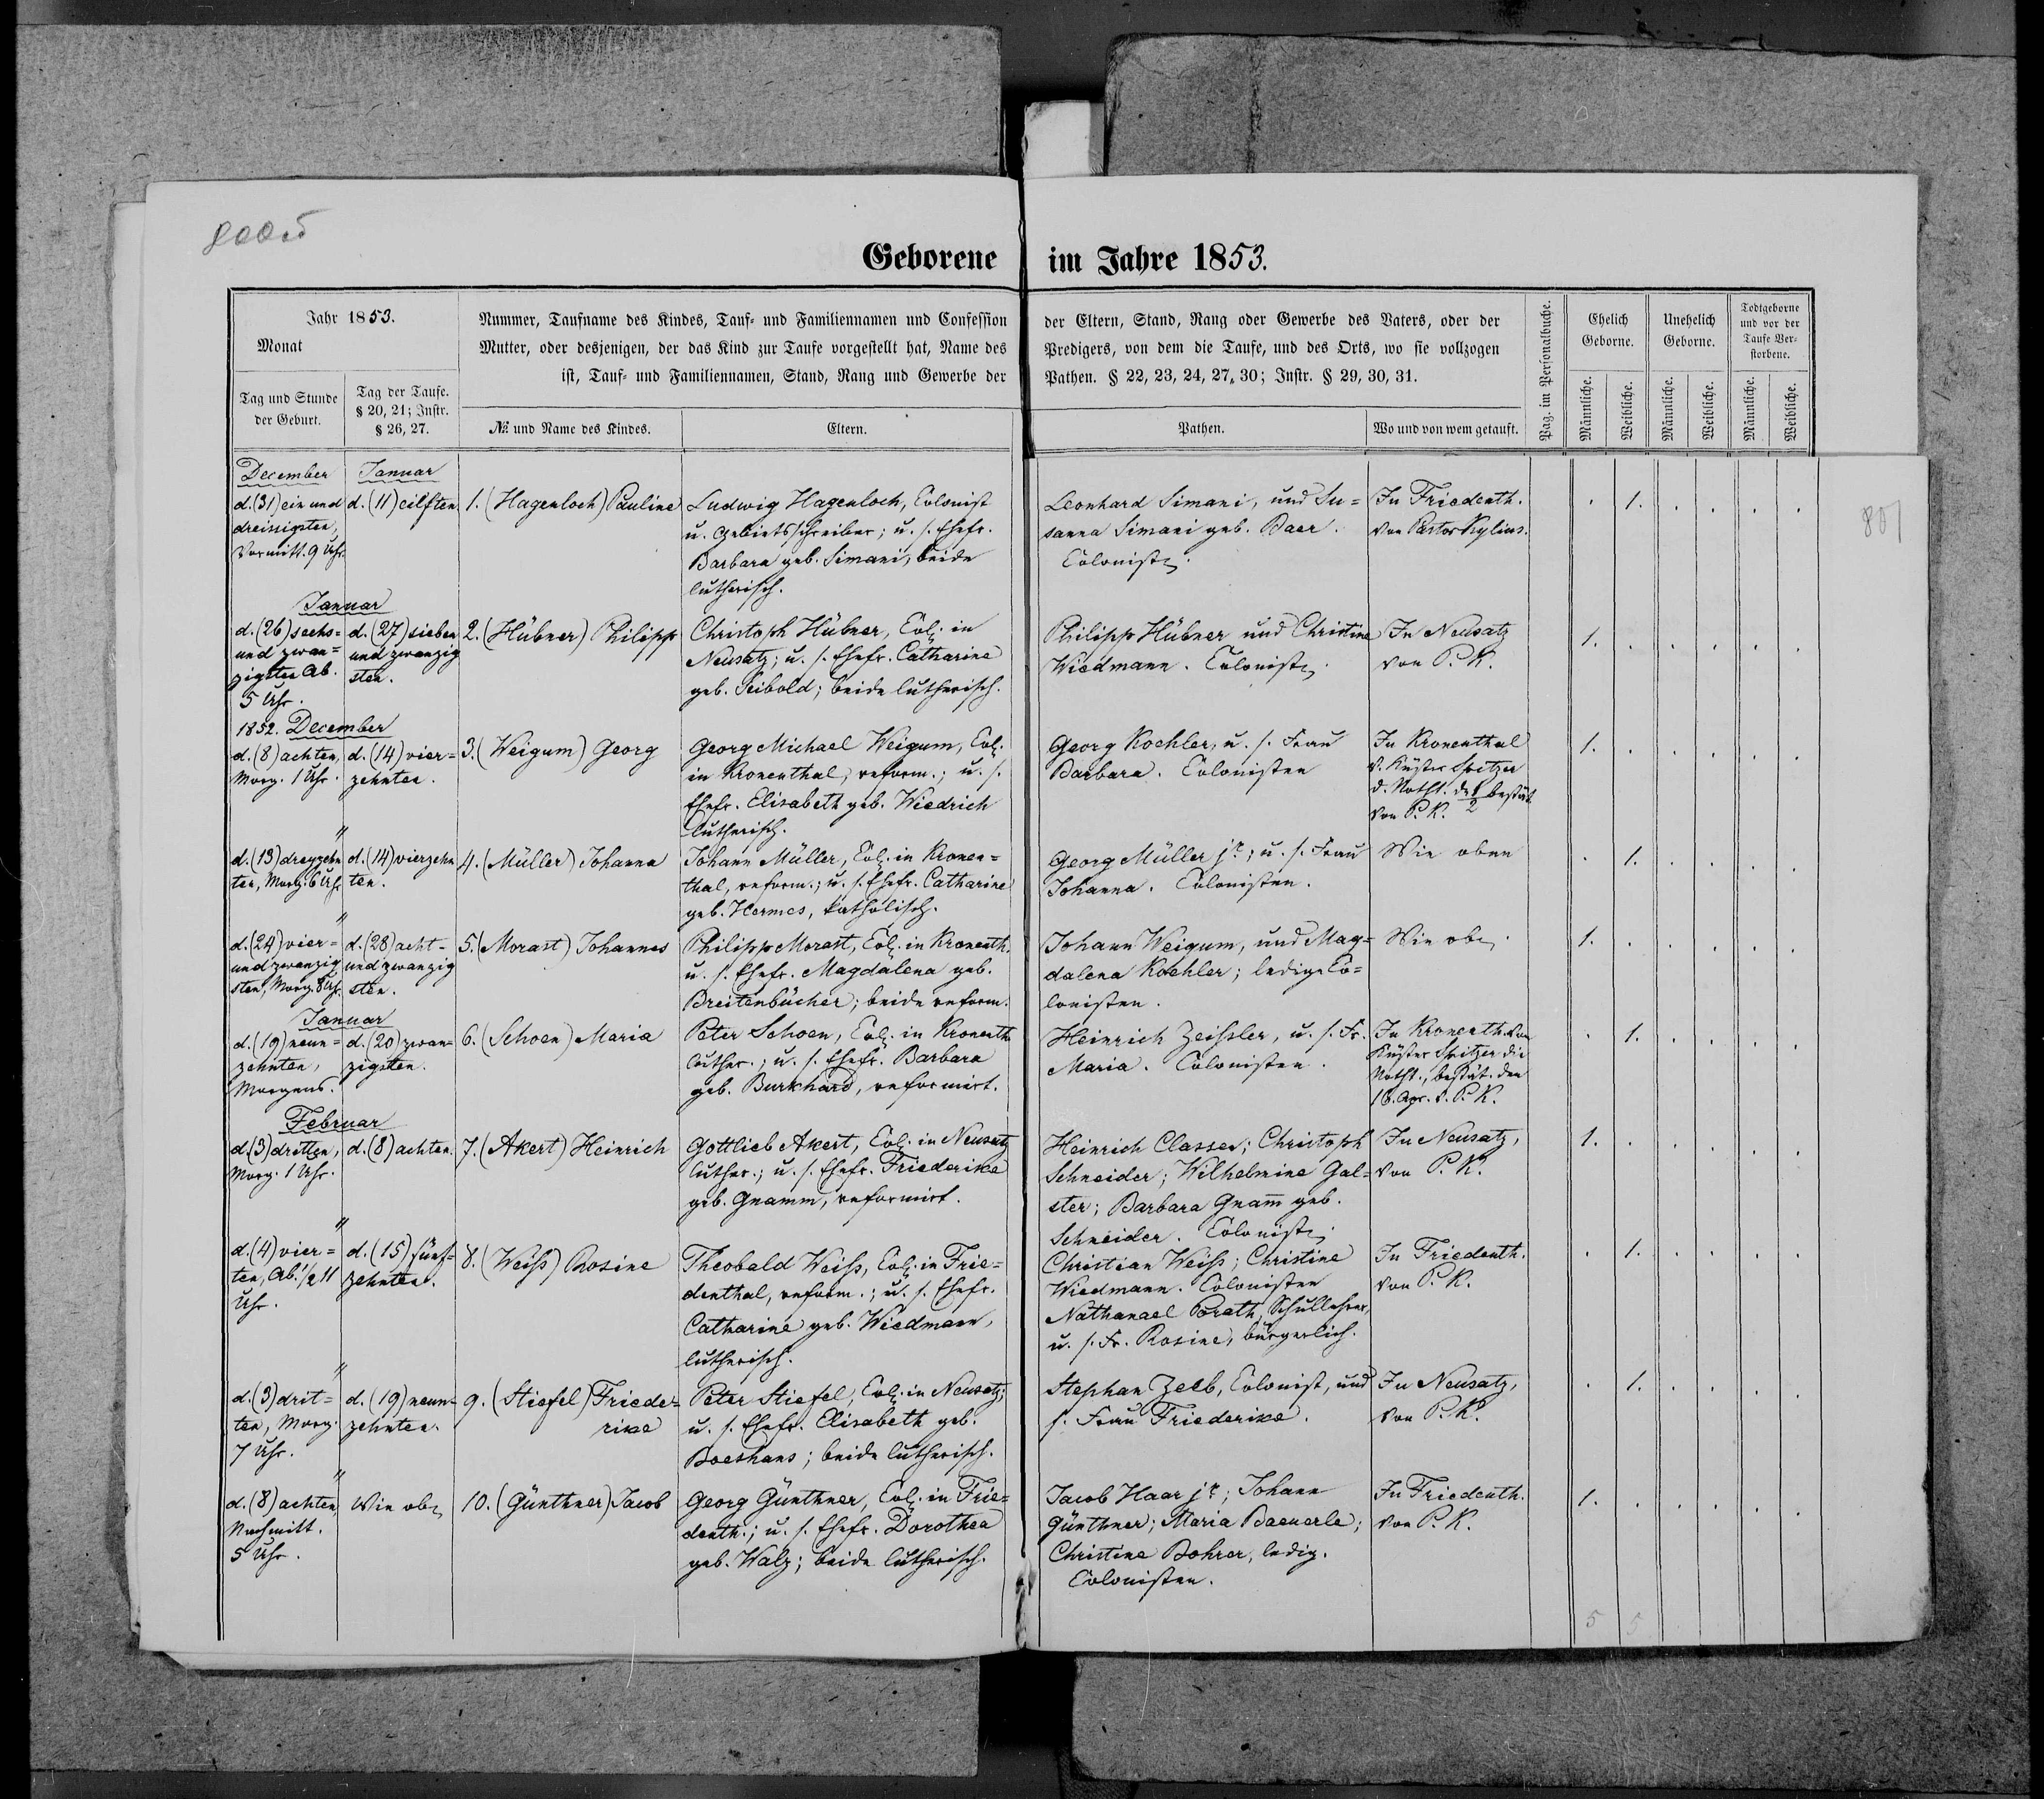 Geborene im Jahre 1853.
Jahr 1853.
Monat
Tag und Stunde
der Geburt.
Tag der Taufe.
§ 20, 21; Instr.
§ 26, 27.
Nummer, Taufname des Kindes, Tauf- und Familiennamen und Confession
Mutter, oder desjenigen, der das Kind zur Taufe vorgestellt hat, Name des
ist, Tauf- und Familiennamen, Stand, Rang und Gewerbe der
№ und Name des Kindes.
Eltern.
der Eltern, Stand, Rang oder Gewerbe des Vaters, oder der
Predigers, von dem die Taufe, und des Orts, wo sie vollzogen
Pathen. § 22, 23, 24, 27, 30; Instr. § 29, 30, 31.
Pathen.
Wo und von wem getauft.
Pag. im Personalbuche.
Ehelich
Geborne.
Unehelich
Geborne.
Todtgeborne
und vor der
Taufe Ver-
storbene.
Männliche.
Weibliche.
Männliche.
Weibliche.
Männliche.
Weibliche.
December
d. (31) ein und
dreissigsten,
Vormitt. 9 Uhr.
Januar
d. (11) eilften.
1. (Hagenloch) Pauline
Ludwig Hagenloch, Colonist
u. Gebietsschreiber; u. s. Ehefr.
Barbara geb. Simani, beide
lutherisch.
Leonhard Simani, und Su=
sanna Simani geb. Baer.
Colonist.
In Friedenth.
von Pastor Kylius.
1.
801
Januar
d. (26) sechs=
und zwan=
zigsten Ab.
5 Uhr.
d. (27) sieben
und zwanzig
sten.
2. (Hübner) Philipp
Christoph Hübner, Col. in
Neusatz; u. s. Ehefr. Catharine
geb. Seibold; beide lutherisch.
Philipp Hübner und Christine
Wiedmann. Colonist.
In Neusatz
von P. K.
1.
1852. December
d. (8) achten,
Morg. 1 Uhr.
d. (14) vier=
zehnten.
3. (Weigum) Georg
Georg Michael Weigum, Col.
in Kronenthal, reform.; u. s.
Ehefr. Elisabeth geb. Wiedrich
lutherisch.
Georg Koehler, u. s. Frau
Barbara. Colonisten
In Kronenthal
v. Küster Spitzer
d. Notht. bestät.
von P. K.
1.
"
d. (13) dreyzehn
ten, Morg. 6 Uhr
d. (14) vierzehn
ten.
4. (Müller) Johanna
Johann Müller, Col. in Kronen=
thal, reform.; u. s. Ehefr. Catharine
geb. Hermes, katholisch.
Georg Müller jr.; u. s. Frau
Johanna. Colonisten.
Wie oben
1.
"
d. (24) vier=
und zwanzig
sten, Morg. 8 Uhr.
d. (28) acht=
und zwanzig
sten.
5. (Morast) Johannes
Philipp Morast, Col. in Kronenth.
u. s. Ehefr. Magdalena geb.
Breitenbücher; beide reform.
Johann Weigum, und Mag=
dalena Koehler; ledige Co=
lonisten.
Wie ob.
1.
Januar
d. (19) neun=
zehnten,
Morgens.
d. (20) zwan=
zigsten.
6. (Schoen) Maria
Peter Schoen, Col. in Kronenth.
luther.; u. s. Ehefr. Barbara
geb. Burkhard, reformirt.
Heinrich Zeissler, u. s. Fr.
Maria. Colonisten.
In Kronenth. von
Küster Spitzer die
Notht., bestät. den
18. Apr. v. P. K.
1.
Februar
d. (3) dritten,
Morg. 1 Uhr.
d. (8) achten.
7. (Akert) Heinrich
Gottlieb Akert, Col. in Neusatz
luther.; u. s. Ehefr. Friederike
geb. Gnamm, reformirt.
Heinrich Classer; Christoph
Schneider; Wilhelmine Gal=
ster; Barbara Gnam̄ geb.
Schneider. Colonist.
In Neusatz,
von P. K.
1.
"
d. (4) vier=
ten, Ab. 1/2 11
Uhr.
d. (15) fünf=
zehnten.
8. (Weiß) Rosine
Theobald Weiß, Col. in Frie=
denthal, reform.; u. s. Ehefr.
Catharine geb. Wiedmann,
lutherisch.
Christian Weiß; Christine
Wiedmann. Colonisten
Nathanael Porath, Schullehrer,
u. s. Fr. Rosine, bürgerlich.
In Friedenth.
von P. K.
1.
"
d. (3) drit=
ten, Morg.
7 Uhr.
d. (19) neun=
zehnten.
9. (Stiefel) Friede=
rike
Peter Stiefel, Col. in Neusatz;
u. s. Ehefr. Elisabeth geb.
Boeshans; beide lutherisch.
Stephan Zeeb, Colonist, und
s. Frau Friederike.
In Neusatz,
von P. K.
1.
"
d. (8) achten,
Nachmitt.
5 Uhr.
Wie ob.
10. (Günthner) Jacob
Georg Günthner, Col. in Frie=
denth.; u. s. Ehefr. Dorothea
geb. Walz; beide lutherisch.
Jacob Haar jr.; Johann
Günthner; Maria Baeuerle;
Christine Bohrer, ledig.
Colonisten.
In Friedenth.
von P. K.
1.
5 5